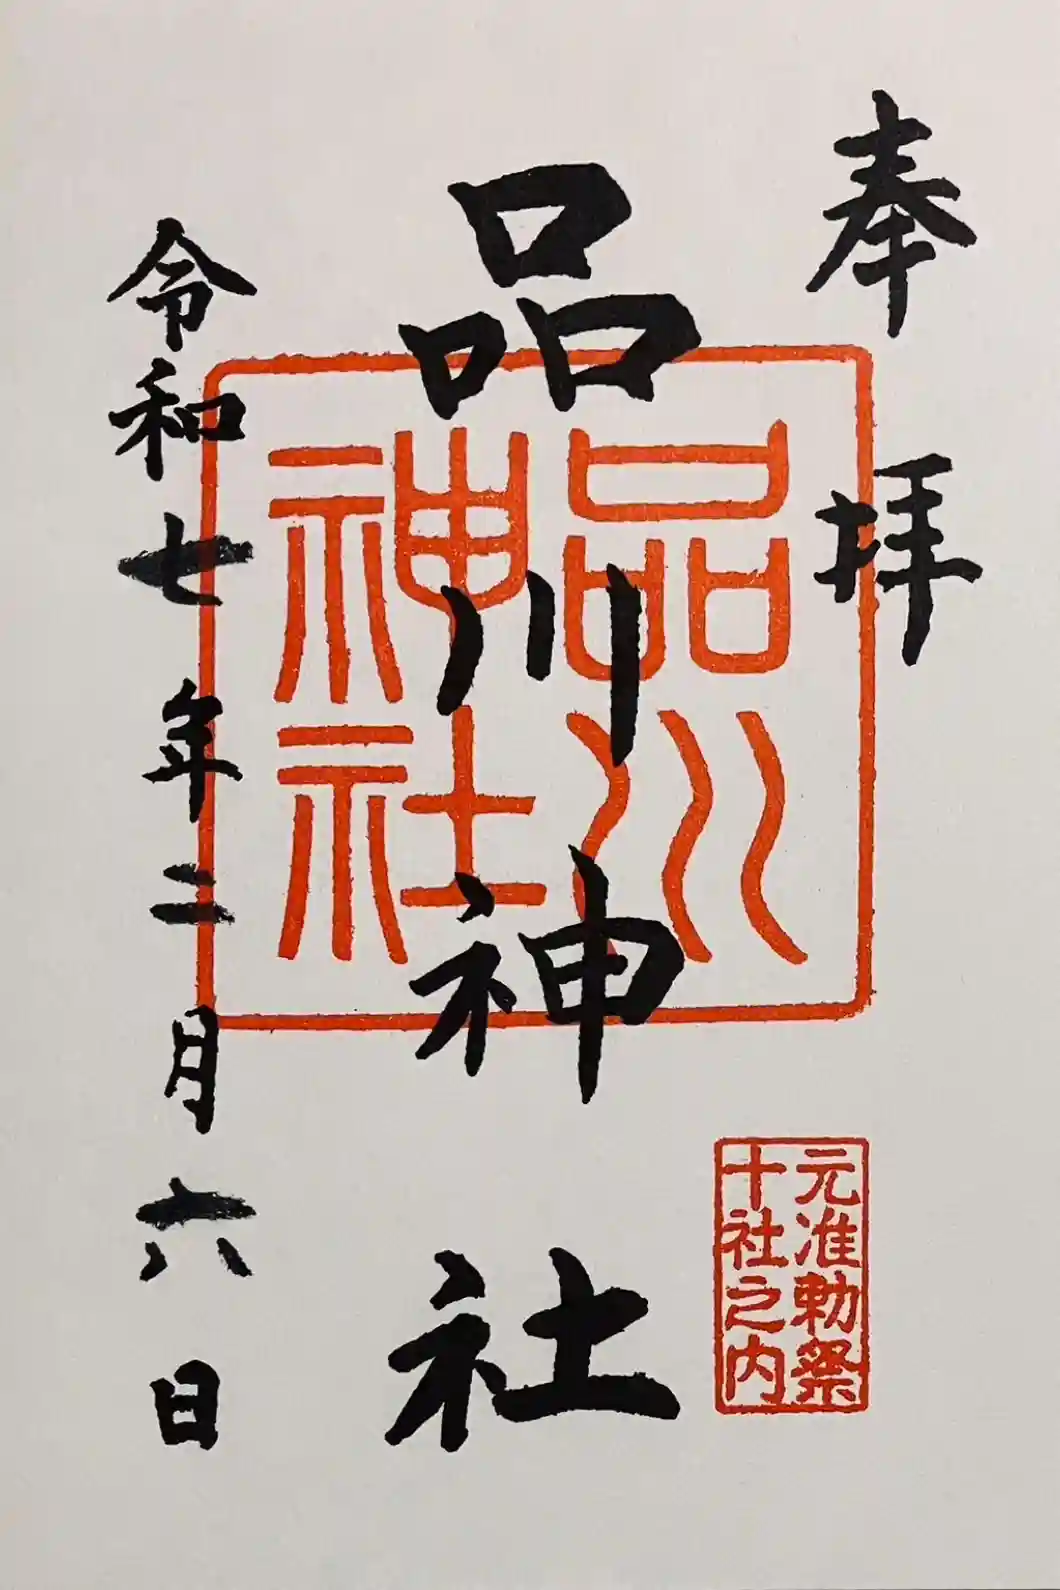 奉拝
品川神社
令和七年二月六日
品川
神社
元准勅祭
十社之内